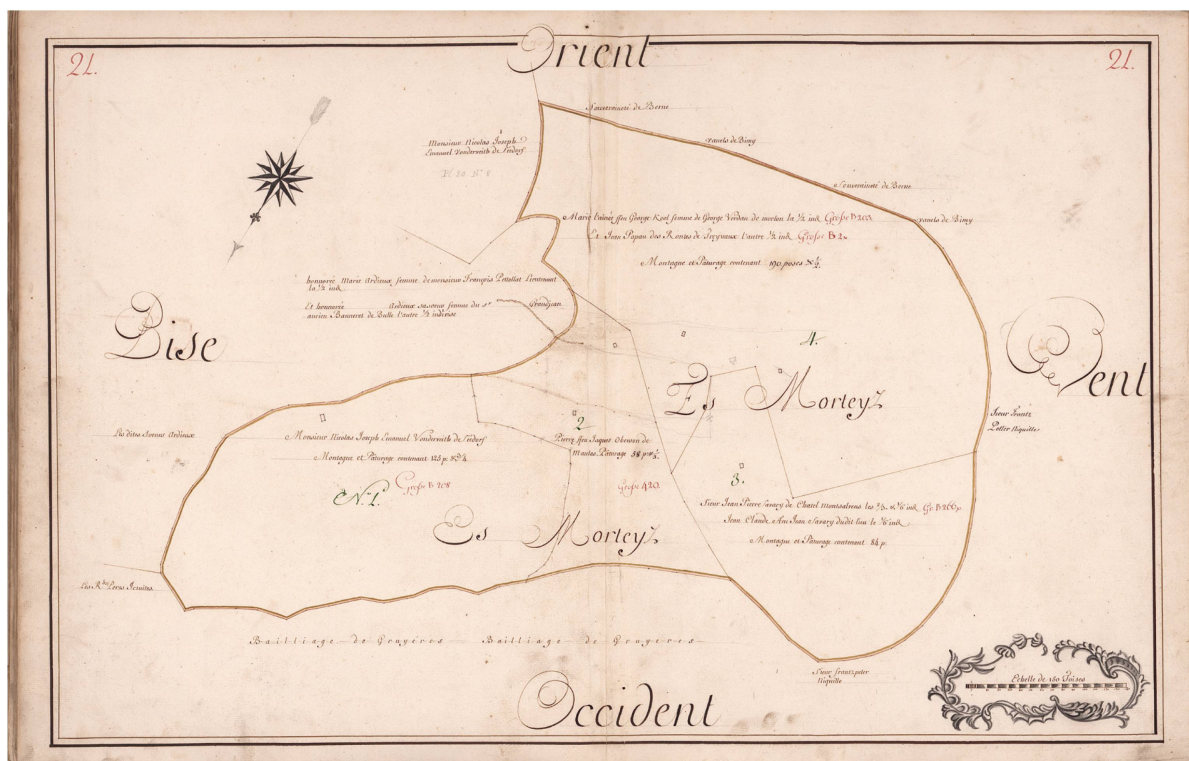 21.
Orient
21.
Souveraineté de Berne
vanels de Bimy
Souveraineté de Berne
vanels de Bimy
Monsieur Nicolas Joseph
Emanuel Vonderveith de Seedorf
Marie ffeu George femme de George Verdan de la 1/2 ind. Grosse B 203
Et Jean des de l'autre 1/2 ind. Grosse B
Montagne et Pâturage contenant 190 poses
honnorée Marie Ardieux femme de monsieur François Pettollat Lieutenant
la 1/2 ind.
Et honnorée Ardieux sa soeur femme du Sr Grandjean
ancien Banneret de Bulle l'autre 1/2 indivise
Bise
Vent
4.
Es Morteyz
Sieur Frantz
Petter Niquille
Les dites soeurs Ardieux
2
Monsieur Nicolas Joseph Emanuel Vonderveith de Seedorf
Montagne et Pâturage contenant 125 p.
Grosse B 208
N. 1.
Pierre ffeu Jaques de
Maules Pâturage 58 p.
Grosse 420
3.
Sieur Jean Pierre Savary de Chatel Montsalvens les
Jean Claude ffeu Jean Savary dudit lieu le 1/6 ind.
Montagne et Pâturage contenant 84 p.
Es Morteyz
Les Rds Peres Jesuites
Bailliage de Gruyeres Bailliage de Gruyeres
Sieur frantz peter
Niquille
Echelle de 150 Toises
Occident